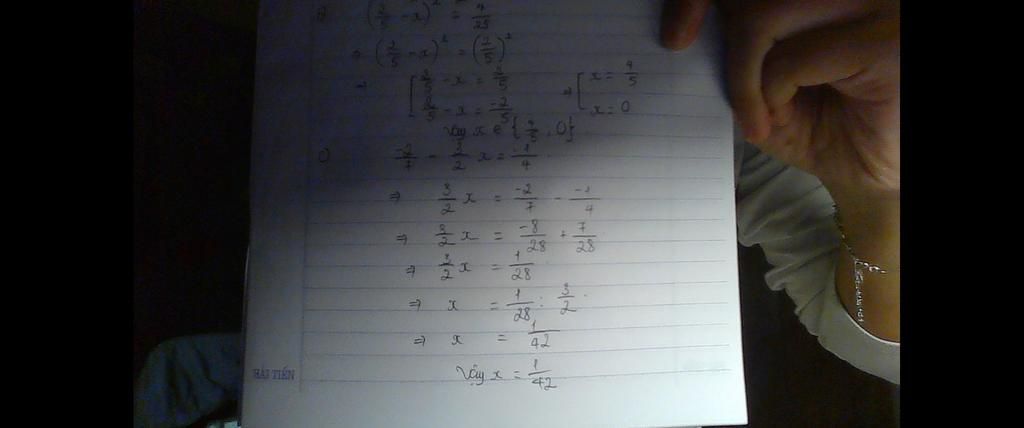 (2/5 - x)² = 4/25
⇒ (2/5 - x)² = (2/5)²
⇒ [ 2/5 - x = 2/5 ⇒ [ x = 4/5
2/5 - x = -2/5 x = 0
Vậy x ∈ {4/5; 0}
c) -2/7 - 3/2 x = -1/4
⇒ 3/2 x = -2/7 - -1/4
⇒ 3/2 x = -8/28 + 7/28
⇒ 3/2 x = 1/28
⇒ x = 1/28 : 3/2
⇒ x = 1/42
Vậy x = 1/42
HẢI TIẾN